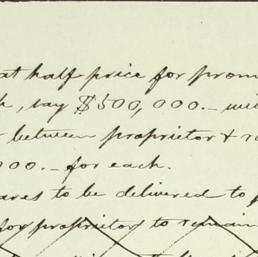 at half price for prom
k, say $500,000. – wi
between proprietor & r
000. – for each.
ares to be delivered to
for proprietor to remain